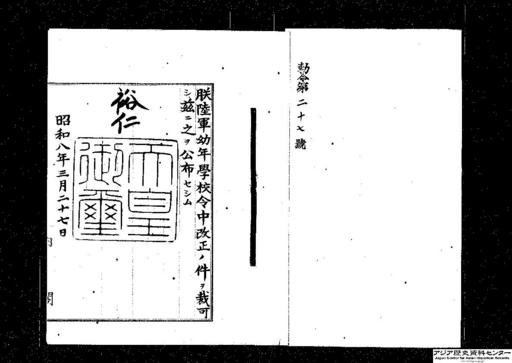 勅令第二十七號
朕陸軍幼年學校令中改正ノ件ヲ裁可
シ茲ニ之ヲ公布セシム
裕仁
天皇御璽
昭和八年三月二十七日
アジア歴史資料センター
Japan Center for Asian Historical Records